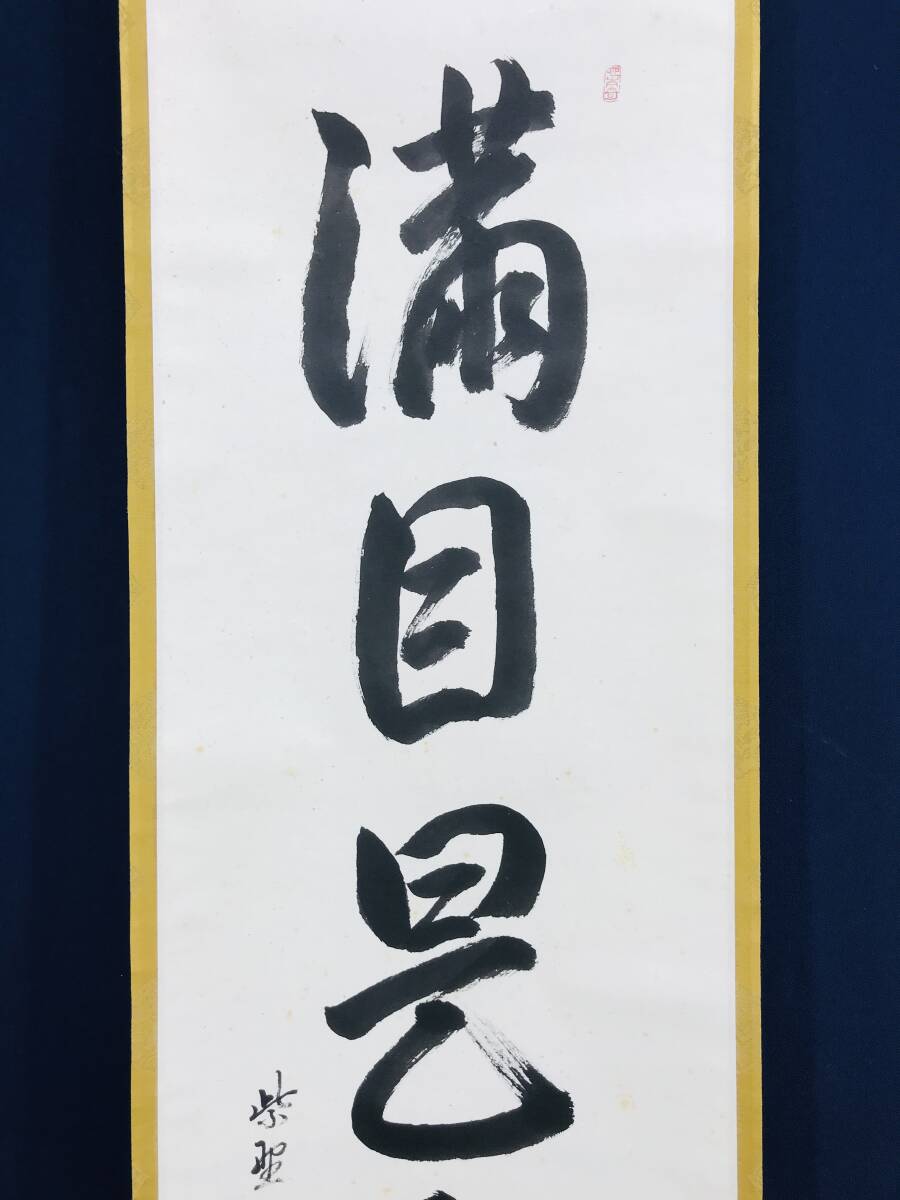 満目是
紫野